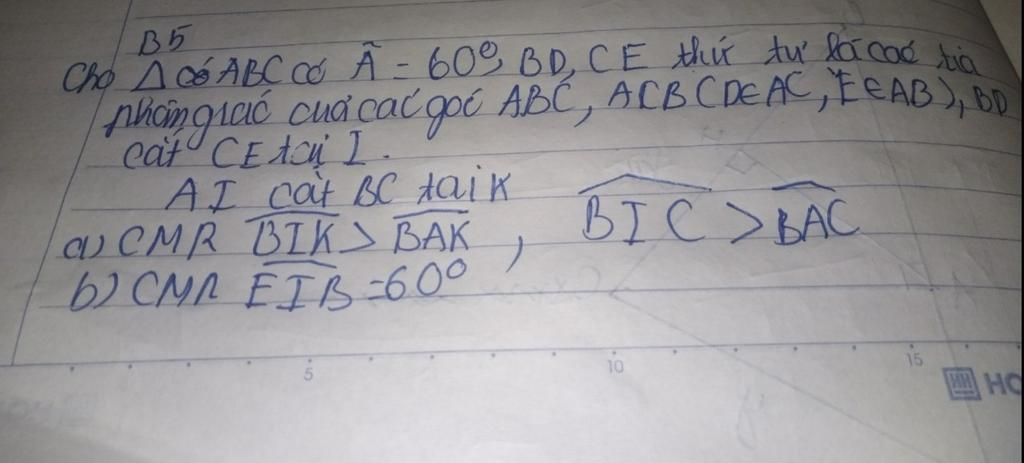 B5
Cho Δ có ABC có Â = 60°, BD, CE thứ tự là các tia
phân giác của các góc ABC, ACB (D∈AC, E∈AB), BD
cắt CE tại I.
AI cắt BC tại K
a) CMR BIK > BAK, BIC > BAC
b) CMR EIB = 60°
5 10 15
HO